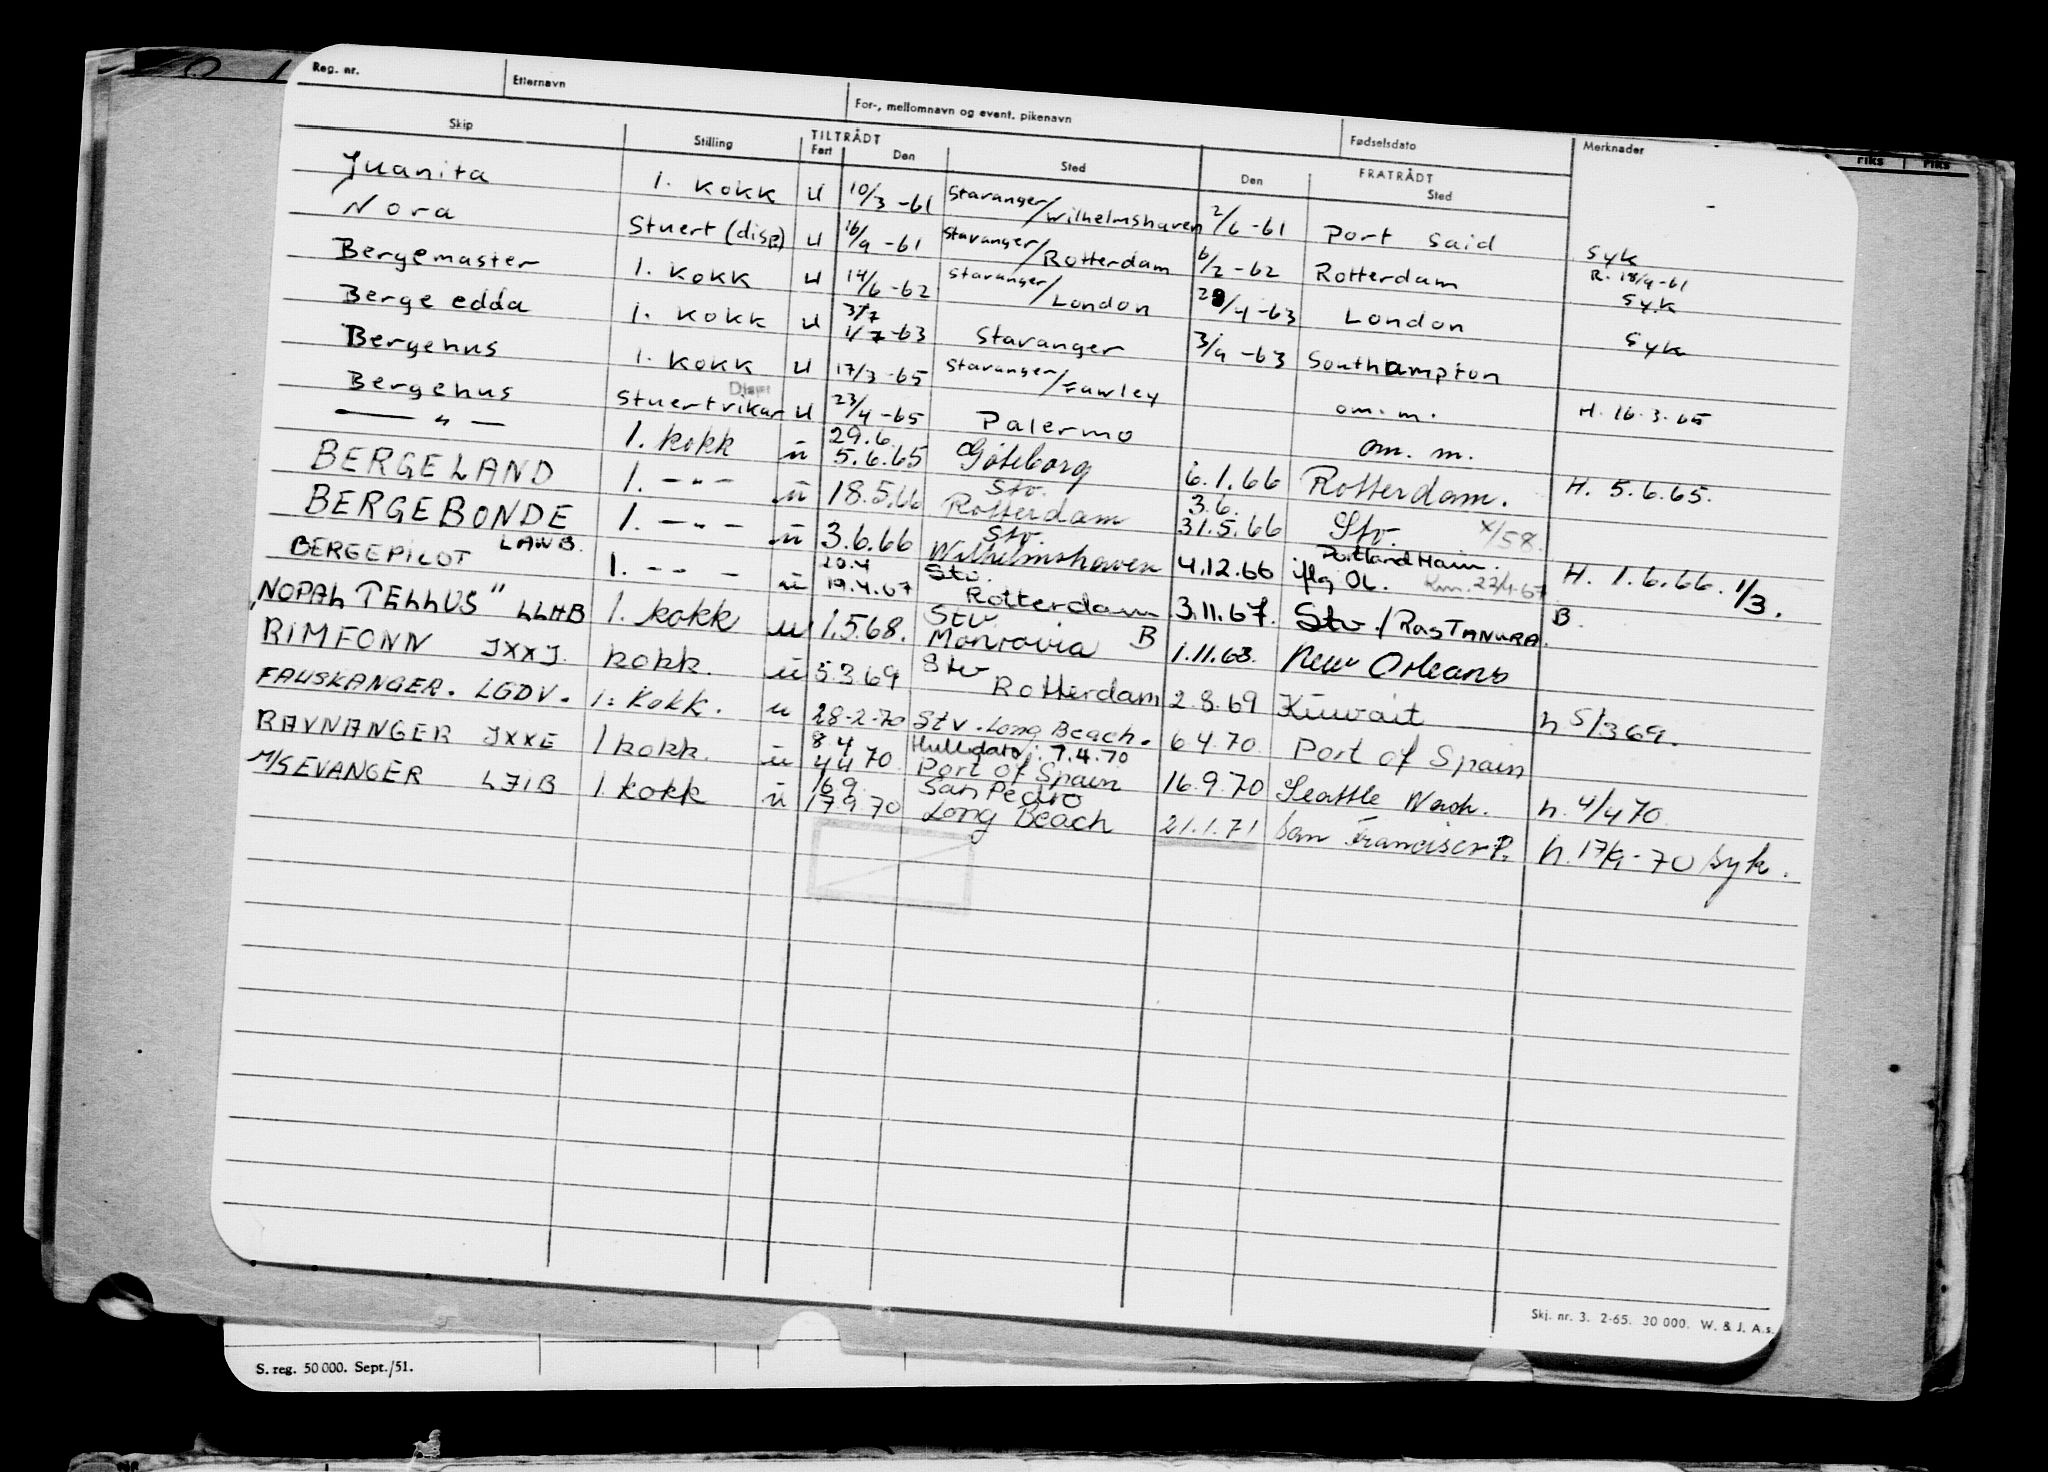 Reg. nr. Etternavn For-, mellomnavn og event. pikenavn Fødselsdato Merknader
Skip Stilling TILTRÅDT Fart Den Sted Den FRATRÅDT Sted
riks riks
Juanita 1. kokk u 10/3 -61 Stavanger/Wilhelmshaven 2/6 -61 Port Said Syk
Nora Stuert (disp) u 16/9 -61 Stavanger/Rotterdam 6/2 -62 Rotterdam R. 18/9-61 Syk
Bergemaster 1. kokk u 14/6 -62 Stavanger/London 29/4 -63 London Syk
Berge edda 1. kokk u 3/7 1/7 -63 Stavanger 3/9 -63 Southampton
Bergehus 1. kokk u 17/3 -65 Stavanger/Fawley om. m. H. 16.3.65
Bergehus Stuertvikar Disp u 23/4 -65 Palermo om. m.
— " — 1. kokk u 29.6. 5.6.65 Göteborg 6.1.66 Rotterdam. H. 5.6.65.
BERGELAND 1. — " — u 18.5.66 Stv. Rotterdam 3.6. 31.5.66 Stv. x/58.
BERGEBONDE LAWB. 1. — " — u 3.6.66 Stv. Wilhelmshaven 4.12.66 Portland Hain. flg OL. H. 1.6.66. 1/3.
BERGEPILOT 1. — " — u 20.4 19.4.67 Stv. Rotterdam 3.11.67. Stv./Ras TANURA. B.
"NOPAL TELLUS" LLHB 1. kokk u 1.5.68. Stv Monrovia B 1.11.68. New Orleans
RIMFONN JXXJ. kokk. u 5.3.69 Stv Rotterdam 2.8.69 Kuwait h 5/3 69.
FAUSKANGER. LGDV. 1: Kokk. u 28-2-70 Stv. Long Beach. 6 4.70. Port of Spain
RAVNANGER JXXE 1 kokk. u 8.4 4 4 70. Hulldato: 7.4.70 Port of Spain 16.9.70 Seattle Wash. h. 4/4 70.
M/S EVANGER LJIB 1. kokk u 16 9. 17 9 70 San Pedro Long Beach 21.1.71 San Francisco P. h. 17/9-70 Syk.
Skj. nr. 3. 2-65. 30 000. W. & J. A.s.
S. reg. 50 000. Sept./51.